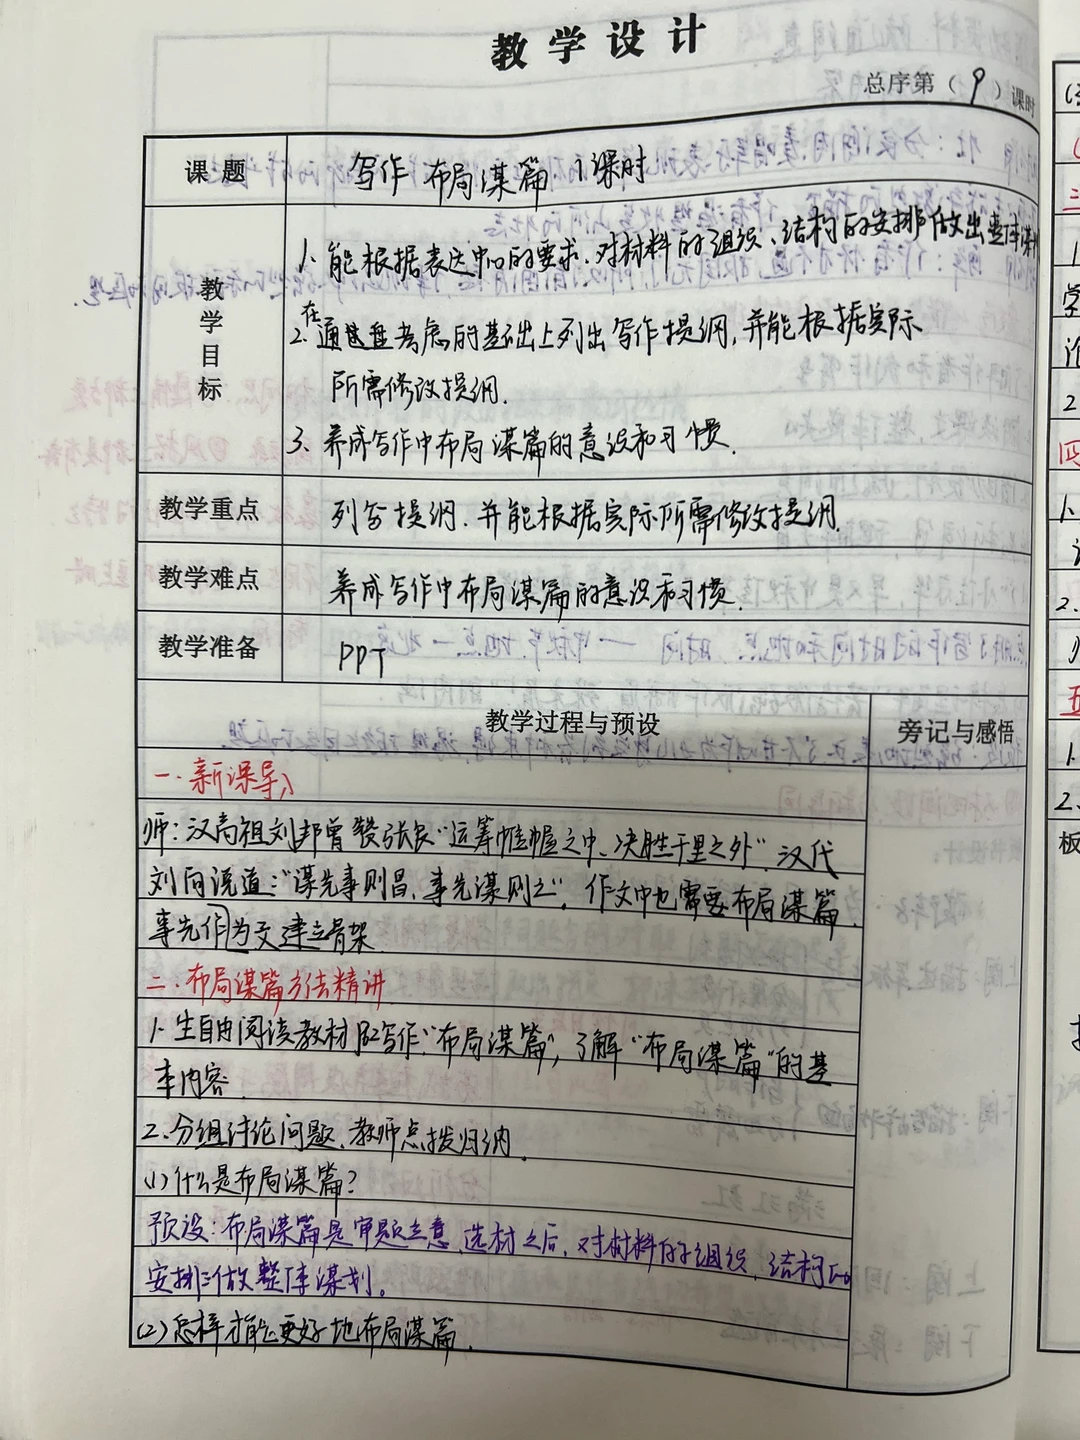 教学设计
总序第（9）课时
课题 写作 布局谋篇 1课时
教学目标
1、能根据表达中心的要求、对材料的组织、结构的安排做出整体谋划
在
2、通盘考虑的基础上列出写作提纲，并能根据实际
所需修改提纲.
3、养成写作中布局谋篇的意识和习惯.
教学重点 列写提纲.并能根据实际所需修改提纲.
教学难点 养成写作中布局谋篇的意识和习惯.
教学准备 PPT
教学过程与预设 旁记与感悟
一.新课导入
师：汉高祖刘邦曾赞张良“运筹帷幄之中、决胜千里之外”汉代
刘向说道：“谋先事则昌，事先谋则亡”。作文中也需要布局谋篇.
事先作为文建立骨架
二.布局谋篇方法精讲
1.生自由阅读教材 写作“布局谋篇”，了解“布局谋篇”的基
本内容.
2、分组讨论问题、教师点拨归纳.
(1)什么是布局谋篇？
预设：布局谋篇是审题立意、选材之后，对材料的组织，结构的
安排做整体谋划。
(2)怎样才能更好地布局谋篇.
学
2
四
1、
2、
五
1.
2、
板